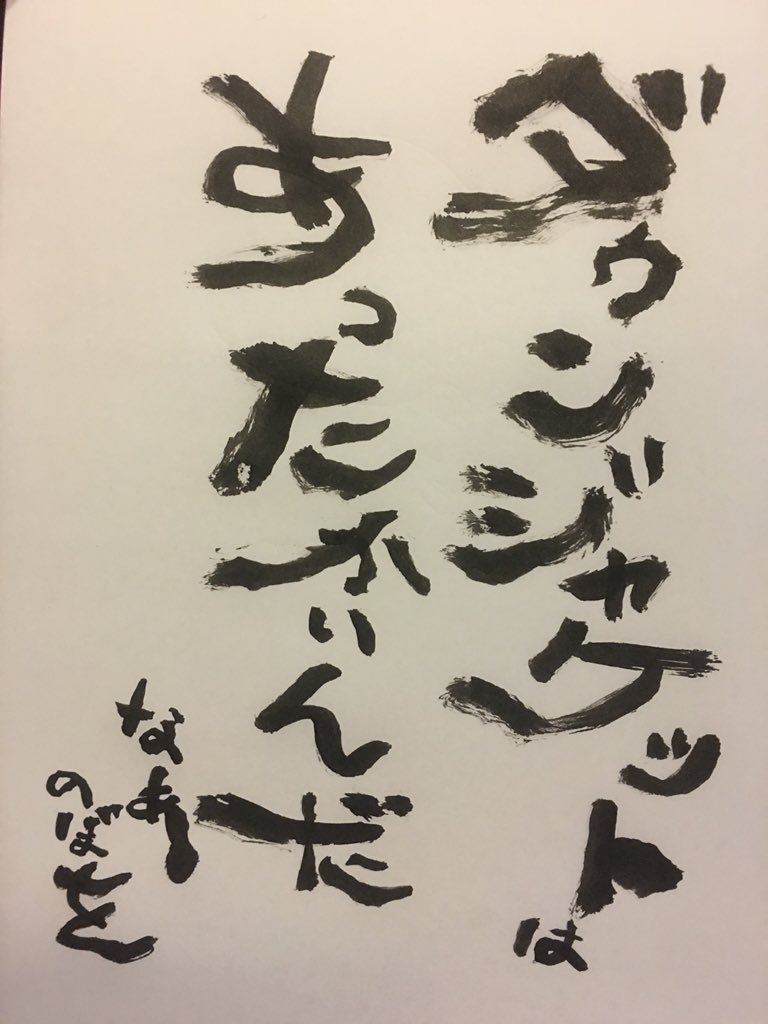 ダウンジャケットは
あったかいんだ
なあー
のぼさん